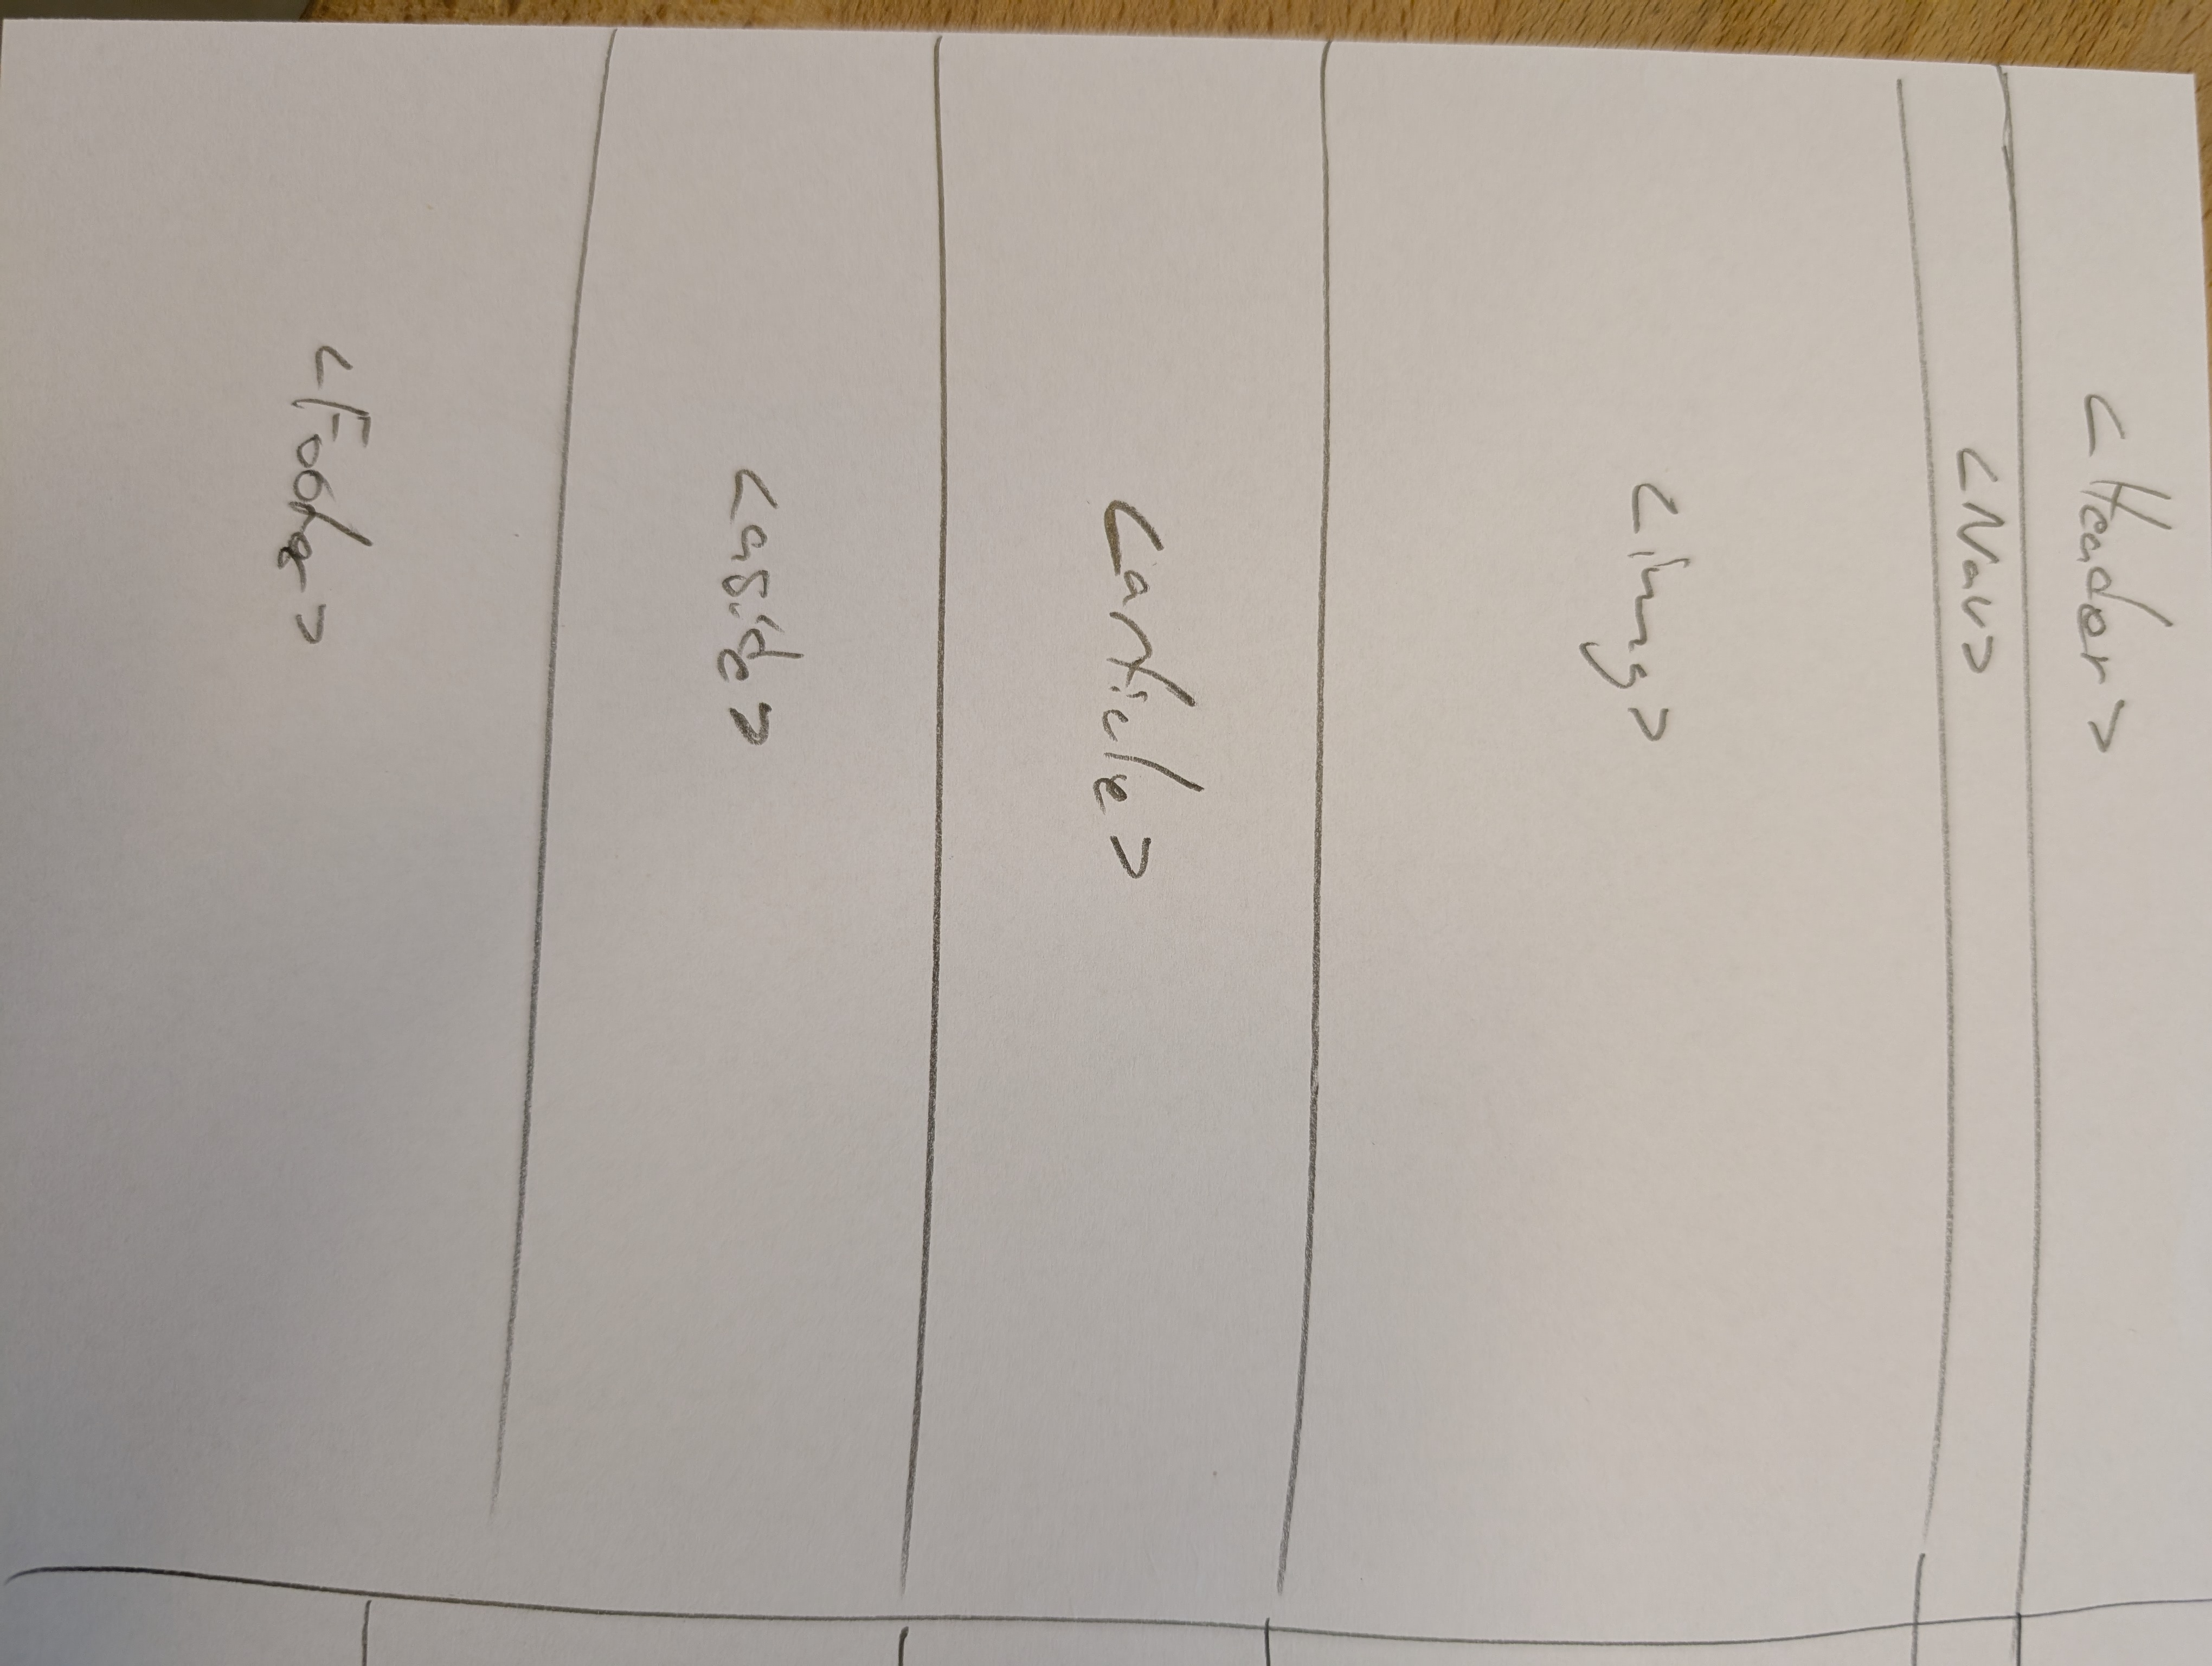 <Header>
<Nav>
<img>
<article>
<aside>
<Footer>